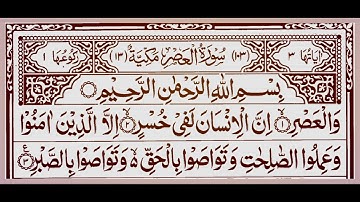 اٰیَاتُهَا ۳ (۱۰۳) سُوْرَةُ الْعَصْرِ مَكِّیَّةٌ (۱۳) رُكُوْعُهَا ۱
بِسْمِ اللّٰهِ الرَّحْمٰنِ الرَّحِیْمِ
وَالْعَصْرِ ۙ﴿۱﴾ اِنَّ الْاِنْسَانَ لَفِیْ خُسْرٍ ۙ﴿۲﴾ اِلَّا الَّذِیْنَ اٰمَنُوْا
وَعَمِلُوا الصّٰلِحٰتِ وَتَوَاصَوْا بِالْحَقِّ ۙ۬ وَتَوَاصَوْا بِالصَّبْرِ ﴿۳﴾